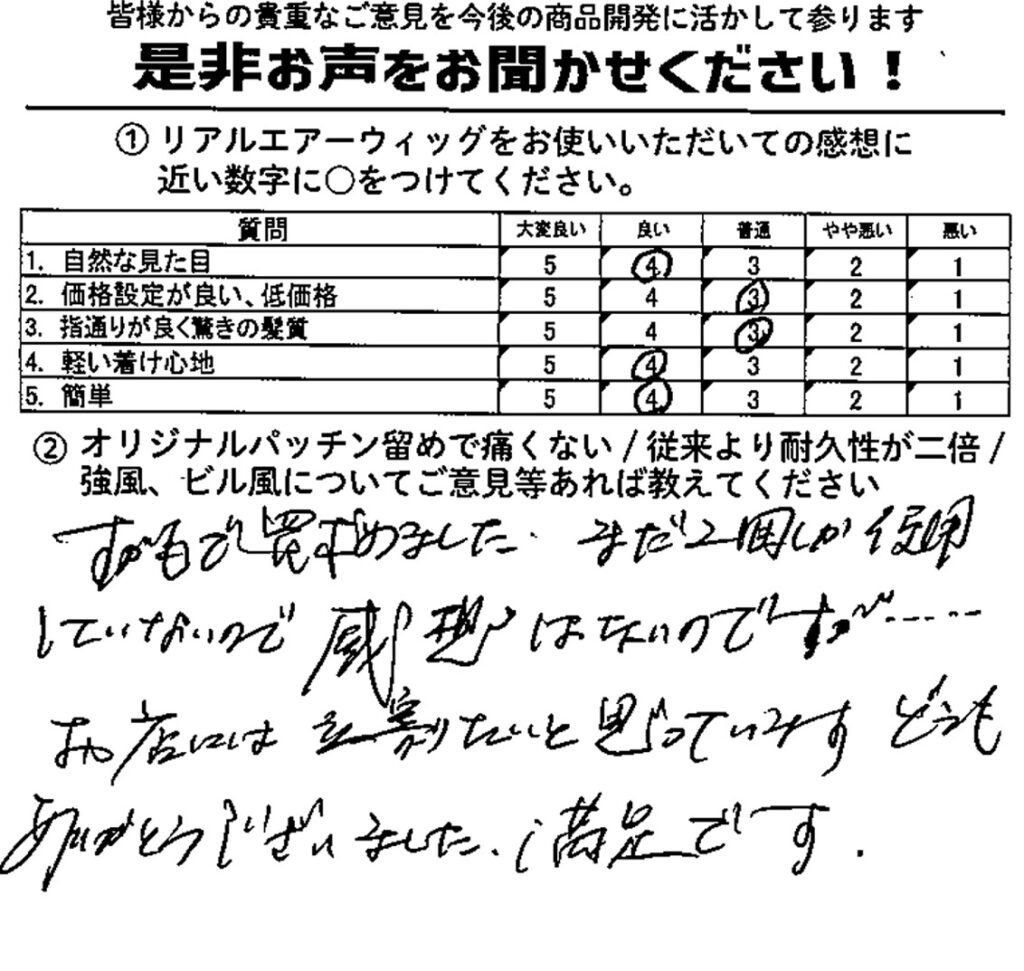 皆様からの貴重なご意見を今後の商品開発に活かして参ります
是非お声をお聞かせください！
① リアルエアーウィッグをお使いいただいての感想に
近い数字に○をつけてください。
質問 大変良い 良い 普通 やや悪い 悪い
1. 自然な見た目 5 4 3 2 1
2. 価格設定が良い、低価格 5 4 3 2 1
3. 指通りが良く驚きの髪質 5 4 3 2 1
4. 軽い着け心地 5 4 3 2 1
5. 簡単 5 4 3 2 1
② オリジナルパッチン留めで痛くない / 従来より耐久性が二倍 /
強風、ビル風についてご意見等あれば教えてください
買求めました. まだ2回しか使用
していないので 感想はないのですが……
お店には たいと思っています どうも
ありがとうございました. 満足です.